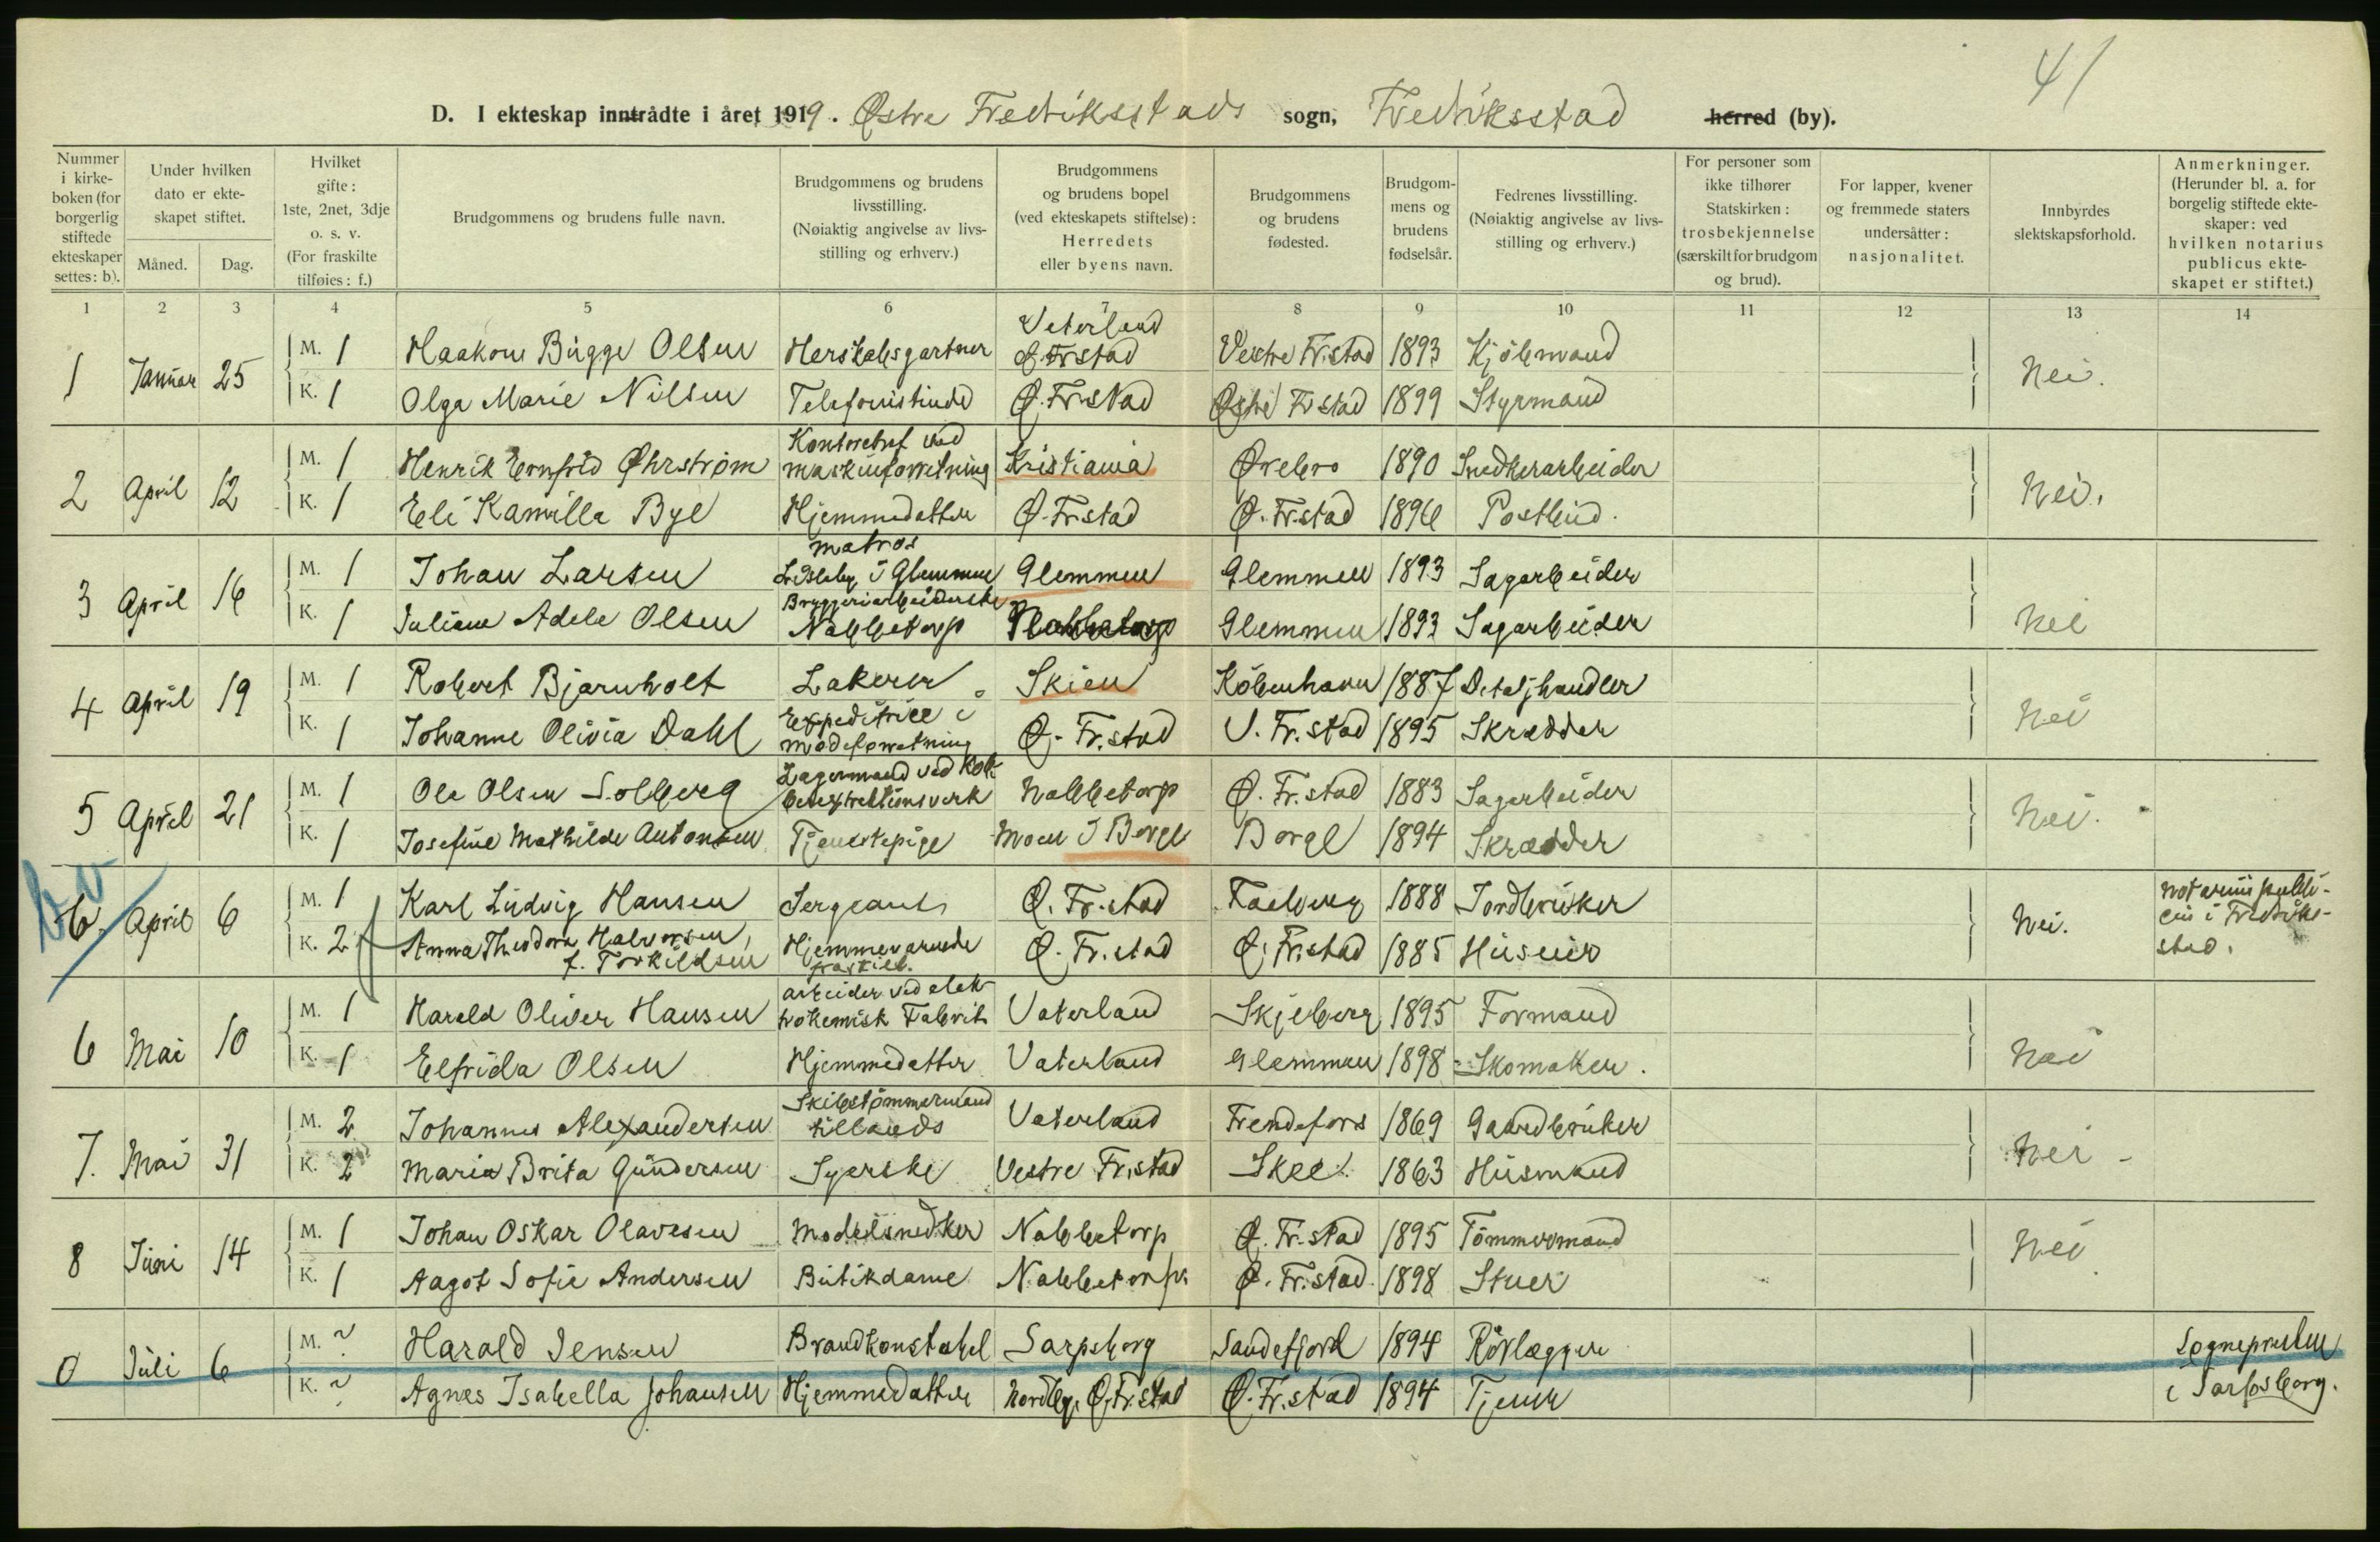 41
D. I ekteskap inntrådte i året 1919. Østre Fredriksstads sogn, Fredriksstad herred (by).
Nummer i kirkeboken (for borgerlig stiftede ekteskaper settes: b).
Under hvilken dato er ekteskapet stiftet.
Måned. Dag.
Hvilket gifte: 1ste, 2net, 3dje o. s. v. (For fraskilte tilføies: f.)
Brudgommens og brudens fulle navn.
Brudgommens og brudens livsstilling. (Nøiaktig angivelse av livsstilling og erhverv.)
Brudgommens og brudens bopel (ved ekteskapets stiftelse): Herredets eller byens navn.
Brudgommens og brudens fødested.
Brudgommens og brudens fødselsår.
Fedrenes livsstilling. (Nøiaktig angivelse av livsstilling og erhverv.)
For personer som ikke tilhører Statskirken: trosbekjennelse (særskilt for brudgom og brud).
For lapper, kvener og fremmede staters undersåtter: nasjonalitet.
Innbyrdes slektskapsforhold.
Anmerkninger. (Herunder bl. a. for borgelig stiftede ekteskaper: ved hvilken notarius publicus ekteskapet er stiftet.)
1 2 3 4 5 6 7 8 9 10 11 12 13 14
1 Januar 25 M. 1 Haakon Bugge Olsen Herskabsgartner Vaterland Ø. Fr.stad Vestre Fr.stad 1893 Kjøbmand Nei.
K. 1 Olga Marie Nilsen Telefonistinde Ø. Fr.stad Østre Fr.stad 1899 Styrmand
2 April 12 M. 1 Henrik Ernfrid Øhrström Kontorchef ved maskinforretning Kristiania Ørebro 1890 Snedkerarbeider Nei.
K. 1 Eli Kamilla Bye Hjemmedatter Ø. Fr.stad Ø. Fr.stad 1896 Postbud.
3 April 16 M. 1 Johan Larsen matros Lisleby i Glemmen Glemmen Glemmen 1893 Sagarbeider Nei
K. 1 Juliane Adele Olsen Bryggeriarbeiderske Nabbetorp Nabbetorp Glemmen 1893 Sagarbeider
4 April 19 M. 1 Robert Bjarnholt Lakerer Skien Köbenhavn 1887 Detaljhandler Nei
K. 1 Johanne Olivia Dahl Expeditrice i modeforretning Ø. Fr.stad V. Fr.stad 1895 Skrædder
5 April 21 M. 1 Ole Olsen Solberg Lagermand ved Kobberextraktionsverk Nabbetorp Ø. Fr.stad 1883 Sagarbeider Nei.
K. 1 Josefine Mathilde Antonsen Tjenestepige Moen i Borge Borge 1894 Skrædder
b. April 6 M. 1 Karl Ludvig Hansen Sergeant Ø. Fr.stad Faaberg 1888 Jordbruker Nei. notarius publicus i Fredriksstad.
K. 2 f Anna Theodora Halvorsen, f. Torkildsen Hjemmeværende fraskilt. Ø. Fr.stad Ø. Fr.stad 1885 Huseier
6 Mai 10 M. 1 Harald Oliver Hansen arbeider ved elektrokemisk Fabrik Vaterland Skjeberg 1895 Formand Nei
K. 1 Elfrida Olsen Hjemmedatter Vaterland Glemmen 1898 Skomaker.
7. Mai 31 M. 2 Johannes Alexandersen Skibstömmermand tillands Vaterland Frendefors 1869 Gaardbruker Nei -
K. 2 Maria Brita Gundersen Syerske Vestre Fr.stad Skee 1863 Husmand
8 Juni 14 M. 1 Johan Oskar Olavesen Modelsnedker Nabbetorp Ø. Fr.stad 1895 Tömmermand Nei
K. 1 Aagot Sofie Andersen Butikdame Nabbetorp. Ø. Fr.stad. 1898 Stuer
0 Juli 6 M. ~ Harald Jensen Brandkonstabel Sarpsborg Sandefjord 1894 Rörlægger Sognepresten i Sarpsborg.
K. ~ Agnes Isabella Johansen Hjemmedatter Nordby, Ø. Fr.stad Ø. Fr.stad 1894 Tjener